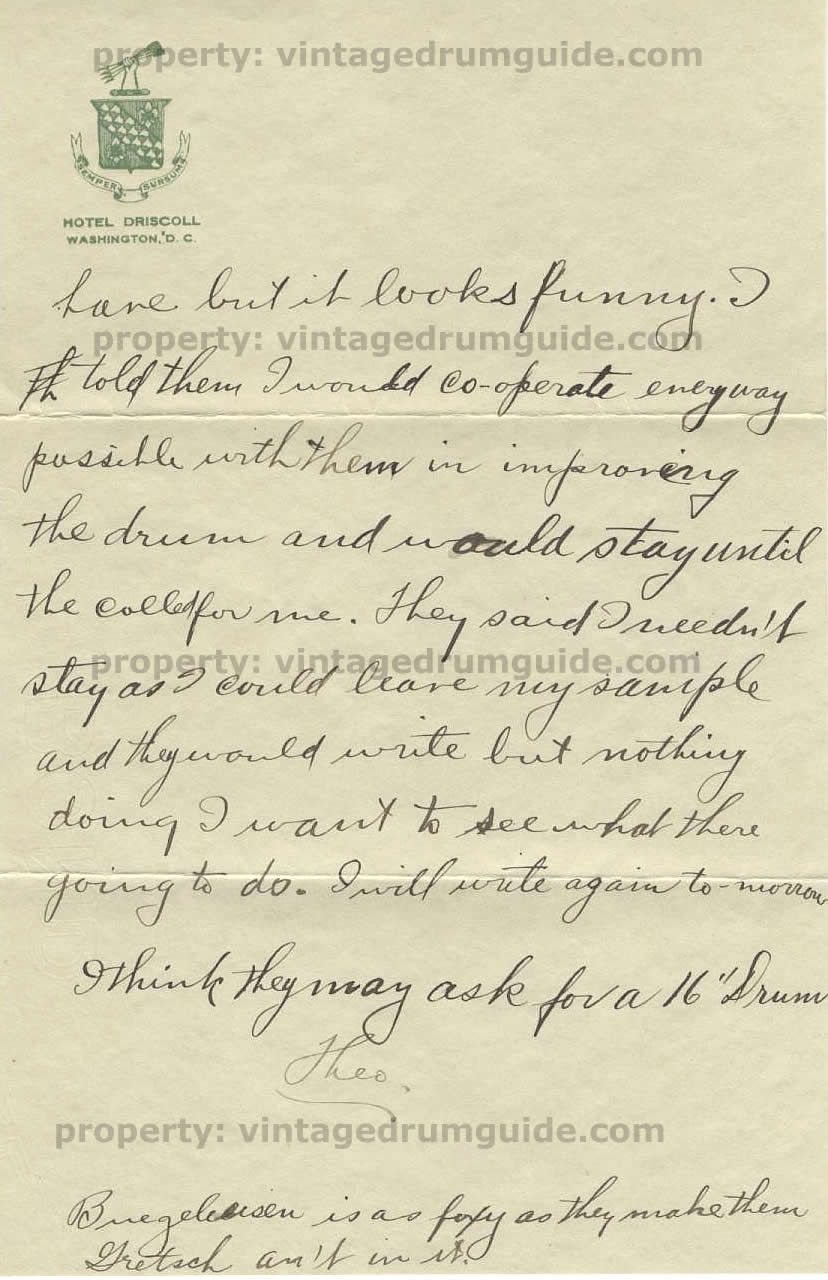 property: vintagedrumguide.com
SEMPER SURSUM
HOTEL DRISCOLL
WASHINGTON, D. C.
have but it looks funny. I
property: vintagedrumguide.com
told them I would co-operate everyway
possible with them in improving
the drum and would stay until
the colled for me. They said I needn't
property: vintagedrumguide.com
stay as I could leave my sample
and they would write but nothing
doing I want to see what there
going to do. I will write again to-morrow
I think they may ask for a 16" Drum
Theo.
property: vintagedrumguide.com
Buegeleisen is as foxy as they make them
Gretsch an't in it.